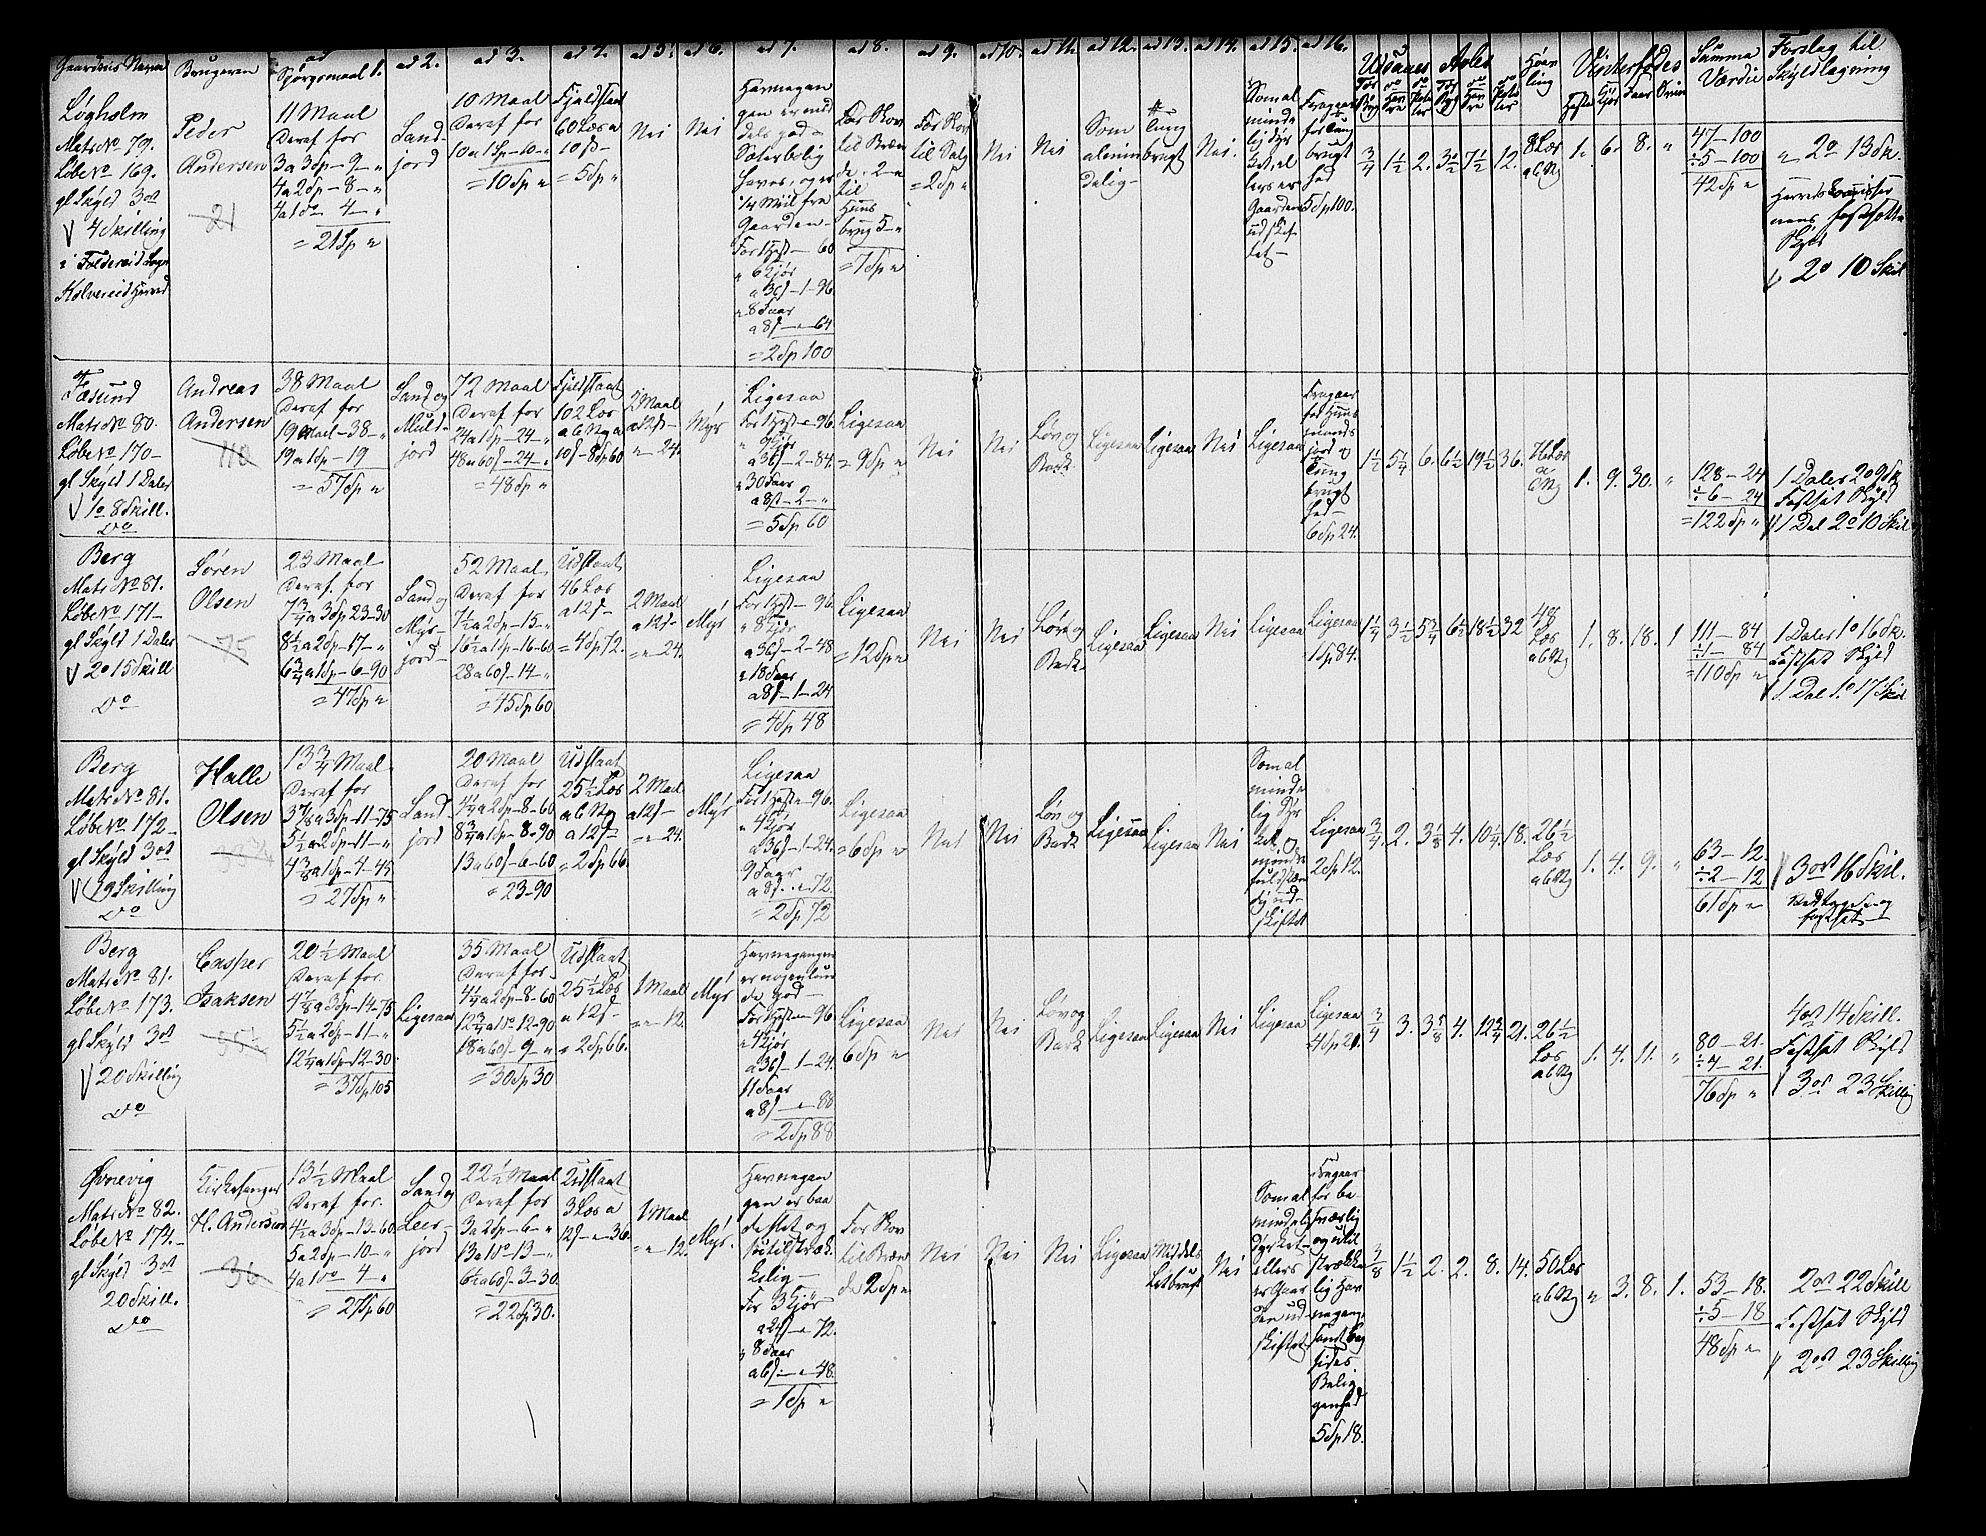 Gaardens Navn
Brugeren
ad Spørgsmaal 1.
ad 2.
ad 3.
ad 4.
ad 5.
ad 6.
ad 7.
ad 8.
ad 9.
ad 10.
ad 11.
ad 12.
ad 13.
ad 14.
ad 15.
ad 16.
Udsaaes
Avles
Høav
ling
Vinterfødes
Heste
Kjør
Faar
Sviin
Summa
Værdie
Forslag til
Skyldlægning
Løgholm
Matr No 79.
Løbe No 169.
gl Skyld 3 ort
4 Skilling
i Foldereid Sogn
Kolvereid Herred
Peder
Andersen
21
11 Maal
Deraf for
3 a 3 Sp - 9 - "
4 a 2 Sp - 8 - "
4 a 1 do - 4 - "
= 21 Sp "
Sand-
jord
10 Maal
Deraf for
10 a 1 Sp - 10 - "
= 10 Sp "
Fjeldslaat
60 Læs a
10 s -
= 5 Sp "
Nei
Nei
Havnegan
gen er nid
dels god -
Sæterbelig
haves, og er
1/4 Miil fra
Gaarden -
For 1 Hest - 60
" 6 Kjør
a 36 s - 1 - 96
" 8 Faar
a 8 s - " - 64
= 2 Sp 100
For Skov
til Bræn
de. 2 - "
til
Huus
brug 5 - "
= 7 Sp "
For Skov
til Salg
= 2 Sp "
Nei
Nei
Som
almin
delig -
Tung
brugt
Nei.
Som al
minde
lig dyr
ket, el
lers er
Gaarden
udskif
tet -
Fragaar
for Tung
brugt
hed
5 Sp 100.
3/4
1 1/2
2.
3 1/2
7 1/2
12.
8 Læs
a 6 Vog
1.
6.
8.
"
47 - 100
÷ 5 - 100
42 Sp "
" 2 o 13 Sk.
Herreds Commissio
nens fastsatte
Skyld
2 o 10 Skil
Fæsund
Matr No 80.
Løbe No 170 -
gl Skyld 1 Daler
1 o 8 Skill.
Do
Andreas
Andersen
110
38 Maal
Deraf for
19 Maal - 38 - "
19 a 1 Sp - 19
= 57 Sp "
Sand og
Muld-
jord
72 Maal
Deraf for
24 a 1 Sp - 24 - "
48 a 60 s - 24 - "
= 48 Sp "
Fjeldslaat
102 Læs
a 6 Vog a
10 s - 8 Sp 60
2 Maal
a 12 s -
" - 24.
Myr
Ligesaa
For 1 Hest " 96.
" 9 Kjør
a 36 s - 2 - 84.
" 30 Faar
a 8 s - 2 - "
= 5 Sp 60
Ligesaa
= 9 Sp "
Nei
Nei
Løv og
Bark.
Ligesaa
Ligesaa
Nei
Ligesaa
Fragaar
for Huus
mands
jord og
Tung
brugt
hed -
6 Sp 24.
1 1/2
5 1/4
6.
6 1/2
19 1/2
36.
76 Læs
a
6 Vog
1.
9.
30.
"
128 - 24
÷ 6 - 24
= 122 Sp "
1 Daler 2 o 9 Sk
Fastsat Skyld
1 Dal 2 o 10 Skil
Berg
Matr No 81.
Løbe No 171 -
gl Skyld 1 Daler
2 o 15 Skill
Do
Søren
Olsen
75
23 Maal
Deraf for
7 3/4 a 3 Sp 23 - 30
8 1/2 a 2 Sp - 17 - "
6 3/4 a 1 Sp - 6 - 90
= 47 Sp "
Sand og
Myr-
jord -
52 Maal
Deraf for
7 1/2 a 2 Sp - 15 - "
16 1/2 a 1 Sp - 16 - 60
28 a 60 s - 14 - "
= 45 Sp 60
Udslaat
46 Læs
a 12 s -
= 4 Sp 72.
2 Maal
a 12 s -
= " - 24.
Myr
Ligesaa
For 1 Hest - 96.
" 8 Kjør
a 36 s - 2 - 48
" 18 Faar
a 8 s - 1 - 24
= 4 Sp 48
Ligesaa
= 12 Sp "
Nei
Nei
Løv og
Bark.
Ligesaa
Ligesaa
Nei
Ligesaa
Ligesaa
1 Sp 84.
1 1/4
3 1/2
5 3/4
6 1/2
18 1/2
32
48
Læs
a 6 Vog
1.
8.
18.
1
111 - 84
÷ 1 - 84
= 110 Sp "
1 Daler 1 o 16 Sk.
Fastsat Skyld
1 Dal 1 o 17 Skil
Berg
Matr No 81.
Løbe No 172 -
gl Skyld 3 ort
19 Skilling
Do
Halle
Olsen
13 3/4 Maal
Deraf for
3 7/8 a 3 Sp - 11 - 75
5 1/2 a 2 Sp - 11 - "
4 3/8 a 1 Sp - 4 - 45
= 27 Sp "
Sand-
jord
20 Maal
Deraf for
4 1/4 a 2 Sp - 8 - 60
8 3/4 a 1 Sp - 8 - 90
13 a 60 s - 6 - 60
= 23 - 90
Udslaat
25 1/2 Læs
a 6 Vog
a 12 s -
= 2 Sp 66.
2 Maal
a 12 s -
= " 24.
Myr
Ligesaa
For 1 Hest " 96.
" 4 Kjør
a 36 s - 1 - 24.
9 Faar
a 8 s - " 72.
= 2 Sp 72
Ligesaa
= 6 Sp "
Nei
Nei
Løv og
Bark
Ligesaa
Ligesaa
Nei
Som al
minde
lig dyr
ket, og
minde
fuldstæn
dig ud
skiftet
Ligesaa
2 Sp 12.
3/4
2.
3 1/8
4.
10 1/4
18.
26 1/2
Læs
a 6 Vog
1.
4.
9.
"
63 - 12.
÷ 2 - 12
61 Sp "
3 ort 16 Skil.
Vedtagen og
fastsat
Berg
Matr No 81.
Løbe No 173.
gl Skyld 3 ort
20 Skilling
Do
Casper
Isaksen
55 1/2
20 1/2 Maal
Deraf for.
4 7/8 a 3 Sp - 14 - 75
5 1/2 a 2 Sp - 11 - "
12 1/4 a 1 Sp - 12 - 30
= 37 Sp 105
Ligesaa
35 Maal
Deraf for
4 1/4 a 2 Sp - 8 - 60
12 3/4 a 1 do 12 - 90
18 a 60 s - 9 - "
= 30 Sp 30
Udslaat
25 1/2 Læs
a 12 s -
= 2 Sp 66.
1 Maal
= " - 12.
Myr
Havnegangen
er nogenlun
de god -
For 1 Hest " 96
" 4 Kjør
a 36 s - 1 - 24.
11 Faar
a 8 s - " 88
= 2 Sp 88
Ligesaa
6 Sp "
Nei
Nei
Løv og
Bark
Ligesaa
Ligesaa
Nei
Ligesaa
Ligesaa
4 Sp 21.
3/4
3.
3 5/8
4.
12 3/4
21.
26 1/2
Læs
a 6 Vog
1.
4.
11.
"
80 - 21.
÷ 4 - 21.
76 Sp "
4 ort 14 Skill.
Fastsat Skyld
3 ort 23 Skilling
Øvrevig
Matr No 82.
Løbe No 174 -
gl Skyld 3 ort
20 Skill.
Do
Kirkesanger
H. Andersen
36
13 1/2 Maal
Deraf for.
4 1/2 a 3 Sp - 13 - 60
5 a 2 Sp - 10 - "
4 a 1 do - 4 - "
= 27 Sp 60
Sand og
Leer-
jord
22 1/2 Maal
Deraf for
3 a 2 Sp - 6 - "
13 a 1 do - 13 - "
6 1/2 a 60 s - 3 - 30.
= 22 Sp 30.
Udslaat
3 Læs a
12 s - " 36.
1 Maal
= " - 12.
Myr.
Havnegan
gen er baa
de slet og
utilstræk
kelig -
For 3 Kjør
a 24 s - " 72.
" 8 Faar
a 6 s - " 48.
= 1 Sp "
For Skov
til Bræn
de 2 Sp "
Nei
Nei
Nei
Ligesaa
Middels
Letbrugt
Nei
Som al
mindelig
dyrket -
ellers
er Gaar
den ud
skiftet
Fragaar
for be-
sværlig
og util
strække
lig Hav
negang
samt Bag
sides
Belig
genhed
5 Sp 18.
3/8
1 1/2
2.
2.
8.
14.
50 Læs
a 6 Vog
"
3.
8.
1.
53 - 18.
÷ 5 - 18
48 Sp "
2 ort 22 Skill
Fastsat Skyld
2 ort 23 Skilling